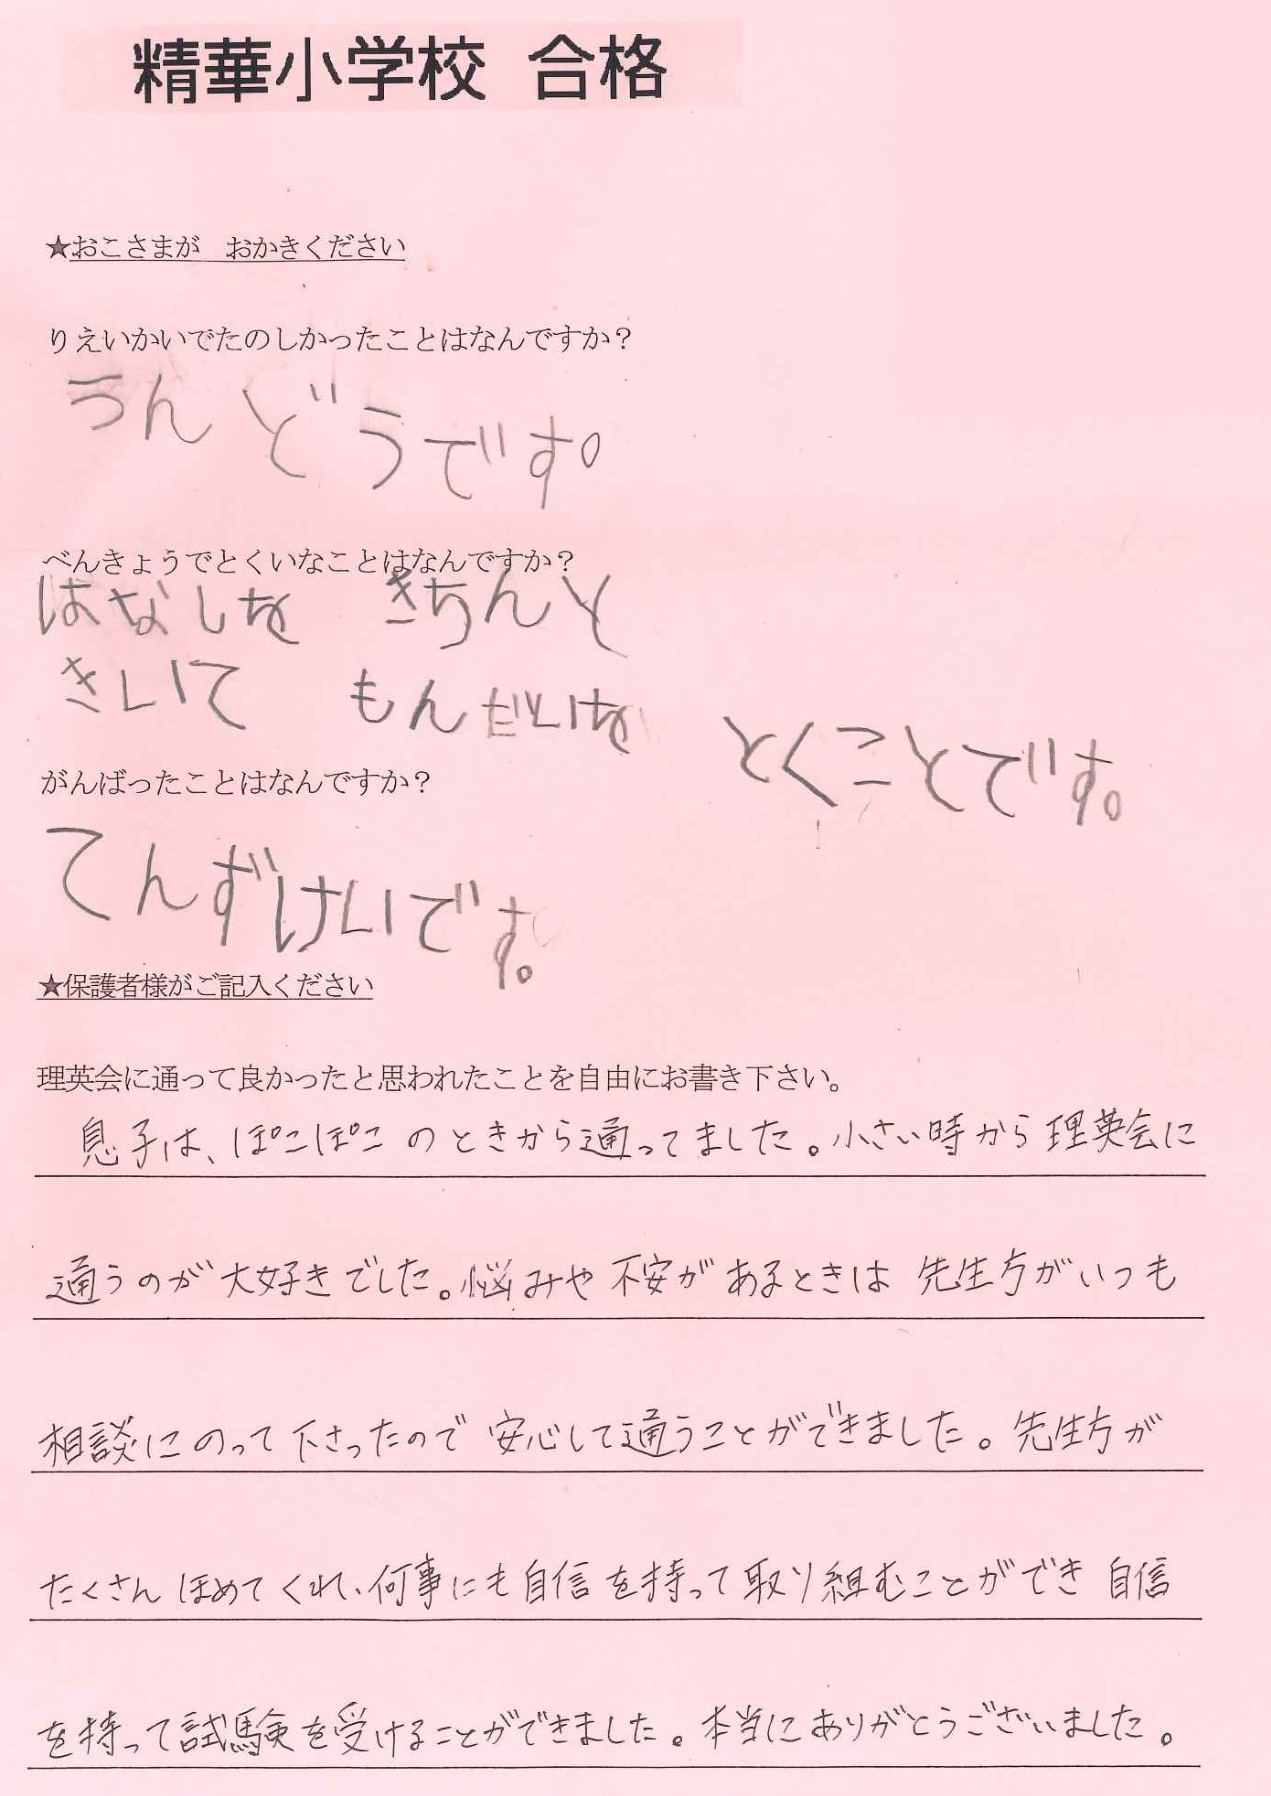 精華小学校 合格
★おこさまが　おかきください
りえいかいでたのしかったことはなんですか？
うんどうです。
べんきょうでとくいなことはなんですか？
はなしを きちんと
きいて もんだいを とくことです。
がんばったことはなんですか？
てんずけいです。
★保護者様がご記入ください
理英会に通って良かったと思われたことを自由にお書き下さい。
息子は、ぽこぽこのときから通ってました。小さい時から理英会に
通うのが大好きでした。悩みや不安があるときは 先生方がいつも
相談にのって下さったので 安心して通うことができました。先生方が
たくさんほめてくれ、何事にも自信を持って取り組むことができ 自信
を持って試験を受けることができました。本当にありがとうございました。